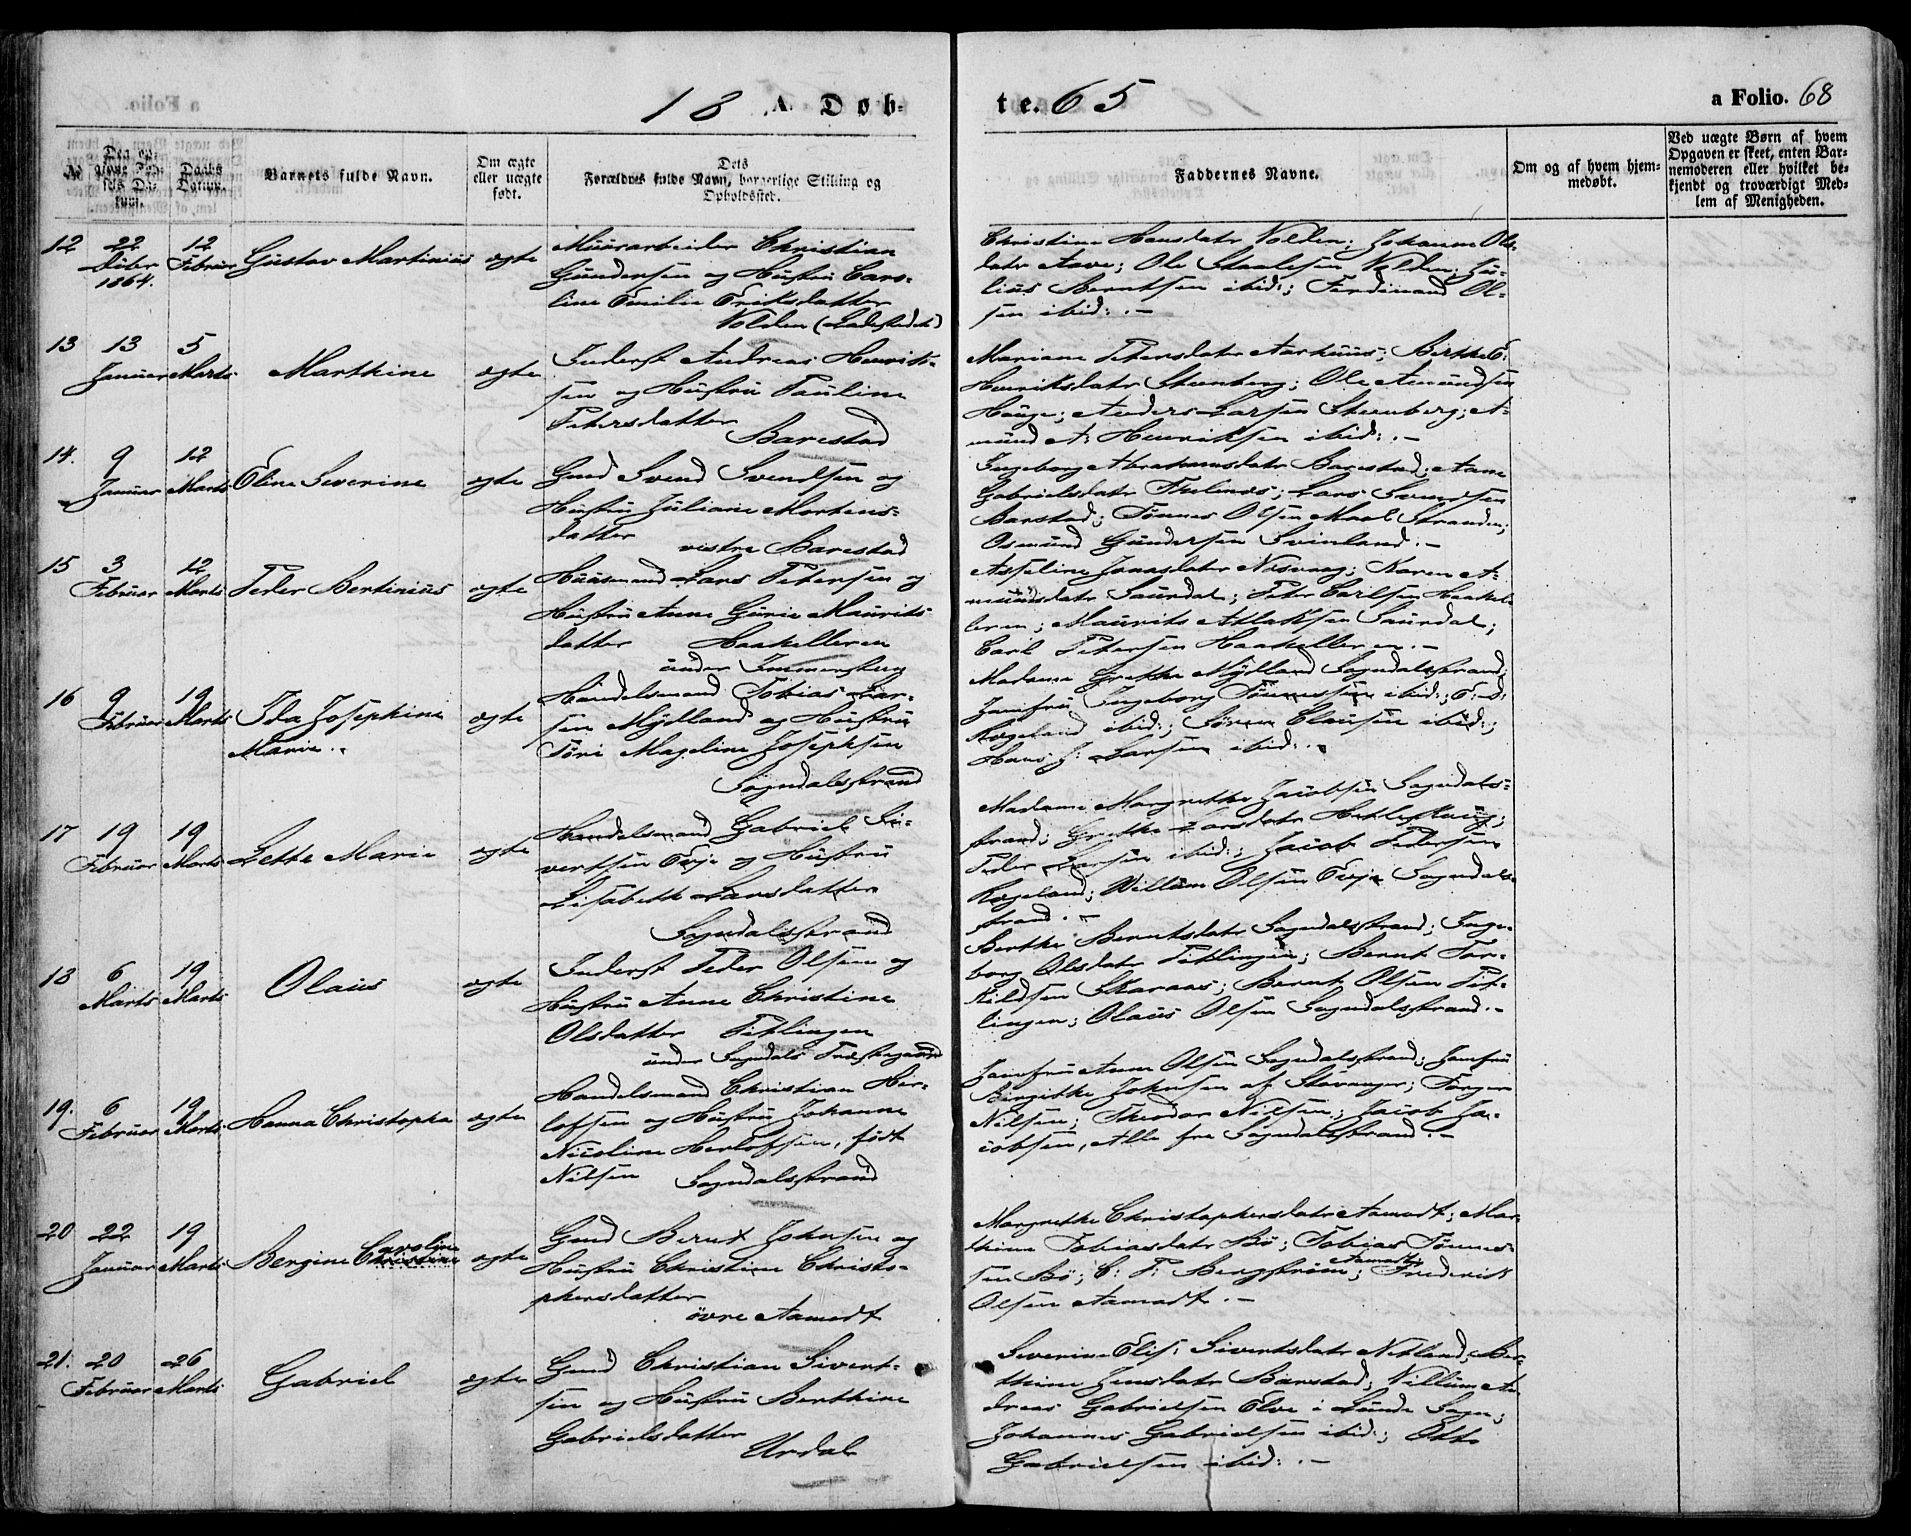 18 A. Døb-
te. 65
a Folio. 68
No
Deg opgivne Fødsels Datum.
Daabs Datum.
Barnets fulde Navn.
Om ægte eller uægte født.
Dets Forældres fulde Navn, borgerlige Stilling og Opholdssted.
Faddernes Navne.
Om og af hvem hjem-
medøbt.
Ved uægte Børn af hvem
Opgaven er skeet, enten Bar-
nemoderen eller hvilket be-
kjendt og troværdigt Med-
lem af Menigheden.
12 22 Dcbr 1864. 12 Februar Gustav Martinius ægte
Muurarbeider Christian
Gundersen og Hustru Caro-
line Emilie Eriksdatter
Volden (Ladestedet)
Christine Hansdatr Volden; Johanne Ols-
datr Aave; Ole Staalesen Volden; Ju-
lius Berntsen ibid:; Ferdinand Ol-
sen ibid: . -
13 13 Januar 5 Marts Marthine ægte
Inderst Andreas Henrik-
sen og Hustru Pauline
Petersdatter
Barestad
Mariane Petersdatr Aarhuus; Birthe E:
Henriksdatr Steenberg; Ole Amundsen
Hauge; Anders Larsen Steenberg; A-
mund A: Henriksen ibid: . -
14. 9 Januar 12 Marts Eline Severine ægte
Gmd Svend Svendsen og
Hustru Juliane Mortens-
datter
vestre Barestad
Ingeborg Abrahamsdatr Barestad; Aane
Gabrielsdatr; Lars Svendsen
Barstad; Tønnes Olsen Maal Stranden;
Osmund Gundersen Svinland . -
15 3 Februar 12 Marts Peder Bertinius ægte
Huusmand Lars Petersen og
Hustru Anne Gurie Maurits-
datter Haakelleren
under Immersteen
Asseline Jonasdatr Nesvaag; Karen A-
mundsdatr Saurdal; Peter Carlsen Haakel-
leren; Maurits Atlaksen Saurdal;
Carl Petersen Haakelleren . -
16 9 Februar 19 Marts Ida Josephine
Marie . ægte
Handelsmand Tobias Lar-
sen Mydland og Hustru
Tori Mageline Josephsen
Sogndalsstrand
Madame Grethe Mydland Sogndalsstrand;
Jomfru Ingeborg Tønnessen ibid:; E: D:
Rogeland ibid:; Søren Clausen ibid:;
Hans J: Larsen ibid: . -
17 19 Februar 19 Marts Lette Marie ægte
Handelsmand Gabriel Si-
vertsen Eeje og Hustru
Lisabeth Larsdatter
Sogndalsstrand
Madame Margrethe Jacobsen Sogndals-
strand; Grethe Larsdatr Hetleskoug;
Peder Larsen ibid:; Jacob Pedersen
Rogeland; Willum Olsen Eeje Sogndals-
strand . -
18 6 Marts 19 Marts Olaus ægte
Inderst Peder Olsen og
Hustru Anne Christine
Olsdatter Titlingen
under Sogndals Præstegaard
Berthe Berntsdatr Sogndalsstrand; Inge-
borg Olsdatr Titlingen; Bernt Tor-
kildsen Skaraas; Bernt Olsen Tit-
lingen; Olaus Olsen Sogndalsstrand . -
19. 6 Februar 19 Marts Hanna Christopha ægte
Handelsmand Christian Her-
lofsen og Hustru Johanne
Nicoline Herlofsen, født
Nilsen Sogndalsstrand
Jomfru Anne Olsen Sogndalsstrand; Jomfru
Birgithe Johnsen af Stavanger; Torger
Nilsen; Theodor Nilsen; Jacob Ja-
cobsen, Alle fra Sogndalsstrand . -
20 22 Januar 19 Marts Bergine Caroline Christine ægte
Gmd Bernt Johnsen og
Hustru Christine Christo-
phersdatter
øvre Aamodt
Margrethe Christophersdatr Aamodt; Mar-
thine Tobiasdatr Bø; Tobias Tønnes-
sen Bø; C: F: Bergstrøm Aamodt; Frederik
Olsen Aamodt . -
21. 20 Februar 26 Marts Gabriel ægte
Gmd Christian Sivert-
sen og Hustru Berthine
Gabrielsdatter
Urdal
Severine Elis: Sivertsdatr Netland; Ber-
thine Jensdatr Barstad; Villum An-
dreas Gabrielsen Elve i Lunde Sogn;
Johannes Gabrielsen ibid:; Otto
Gabrielsen ibid: . -